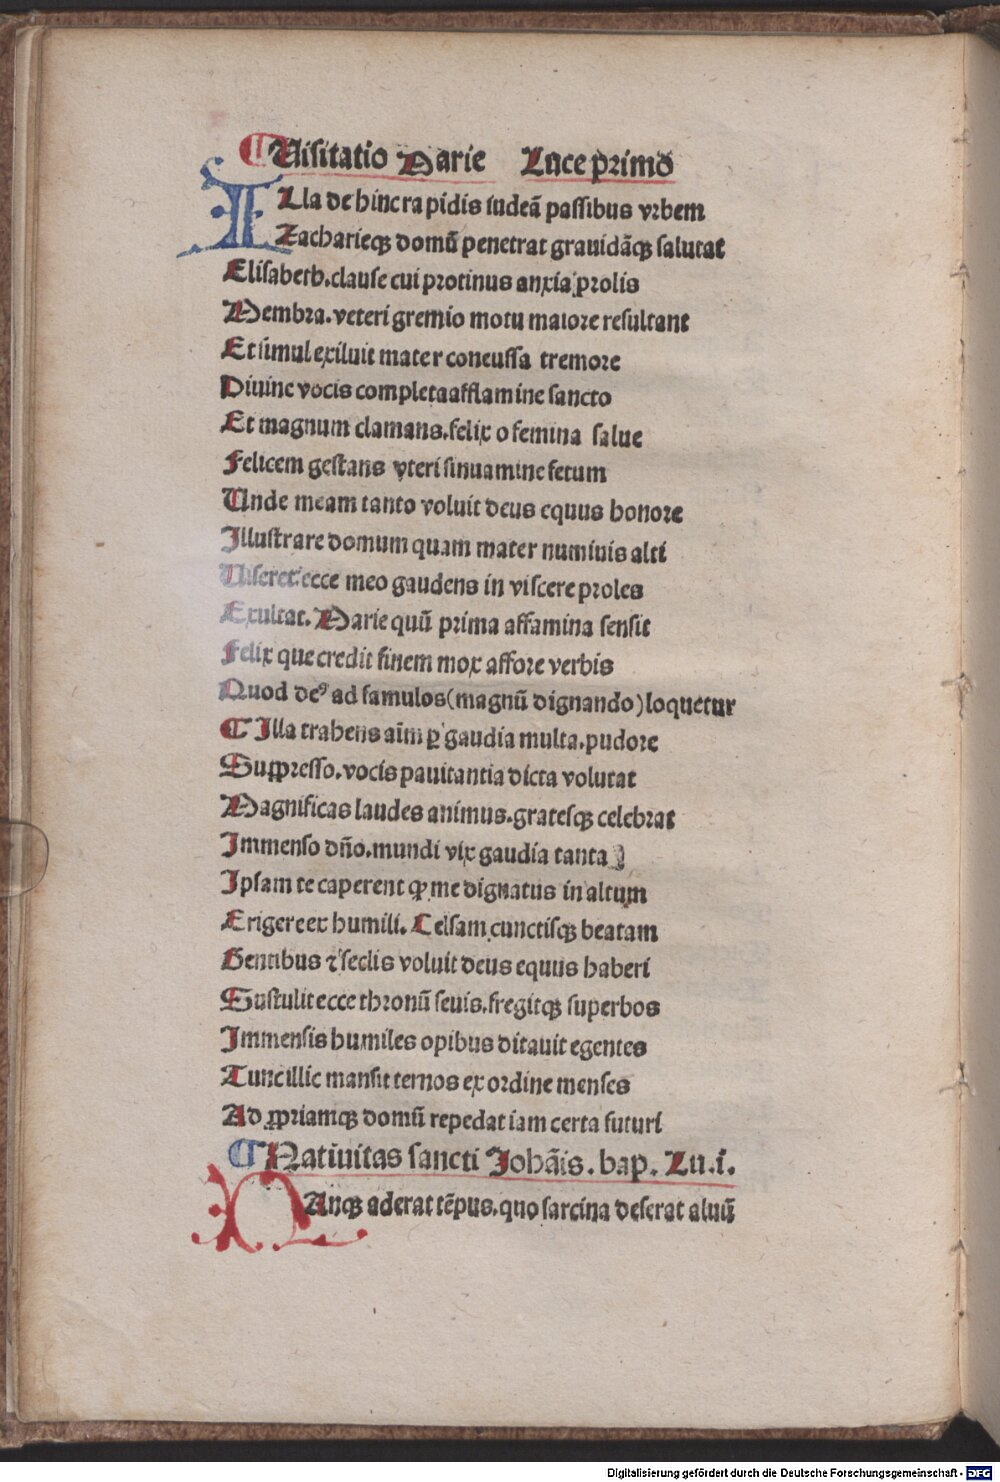 ¶ Uisitatio Marie Luce primo
ILla dehinc rapidis iudeã passibus vrbem
Zacharieqꝫ domũ penetrat grauidãqꝫ salutat
Elisabeth.clause cui protinus anxia prolis
Membra.veteri gremio motu maiore resultant
Et simul exiluit mater concussa tremore
Diuine vocis completa afflamine sancto
Et magnum clamans.felix o femina salue
Felicem gestans vteri sinuamine fetum
Unde meam tanto voluit deus equus honore
Illustrare domum quam mater numinis alti
Uiseret.ecce meo gaudens in viscere proles
Exultat. Marie quũ prima affamina sensit
Felix que credit finem mox affore verbis
Quod deꝰ ad famulos(magnũ dignando)loquetur
¶ Illa trahens aĩm ꝑ gaudia multa.pudore
Suppresso.vocis pauitantia dicta volutat
Magnificas laudes animus.gratesqꝫ celebrat
Immenso dño.mundi vix gaudia tanta
Ipsam te caperent ꝙ me dignatus in altum
Erigere ex humili. Celsam cunctisqꝫ beatam
Gentibus ⁊ seclis voluit deus equus haberi
Sustulit ecce thronũ seuis.fregitqꝫ superbos
Immensis humiles opibus ditauit egentes
Tunc illic mansit ternos ex ordine menses
Ad ꝓpriamqꝫ domũ repedat iam certa futuri
¶ Natiuitas sancti Johãis.bap. Lu.i.
NAnqꝫ aderat tẽpus.quo sarcina deserat aluũ
Digitalisierung gefördert durch die Deutsche Forschungsgemeinschaft - DFG